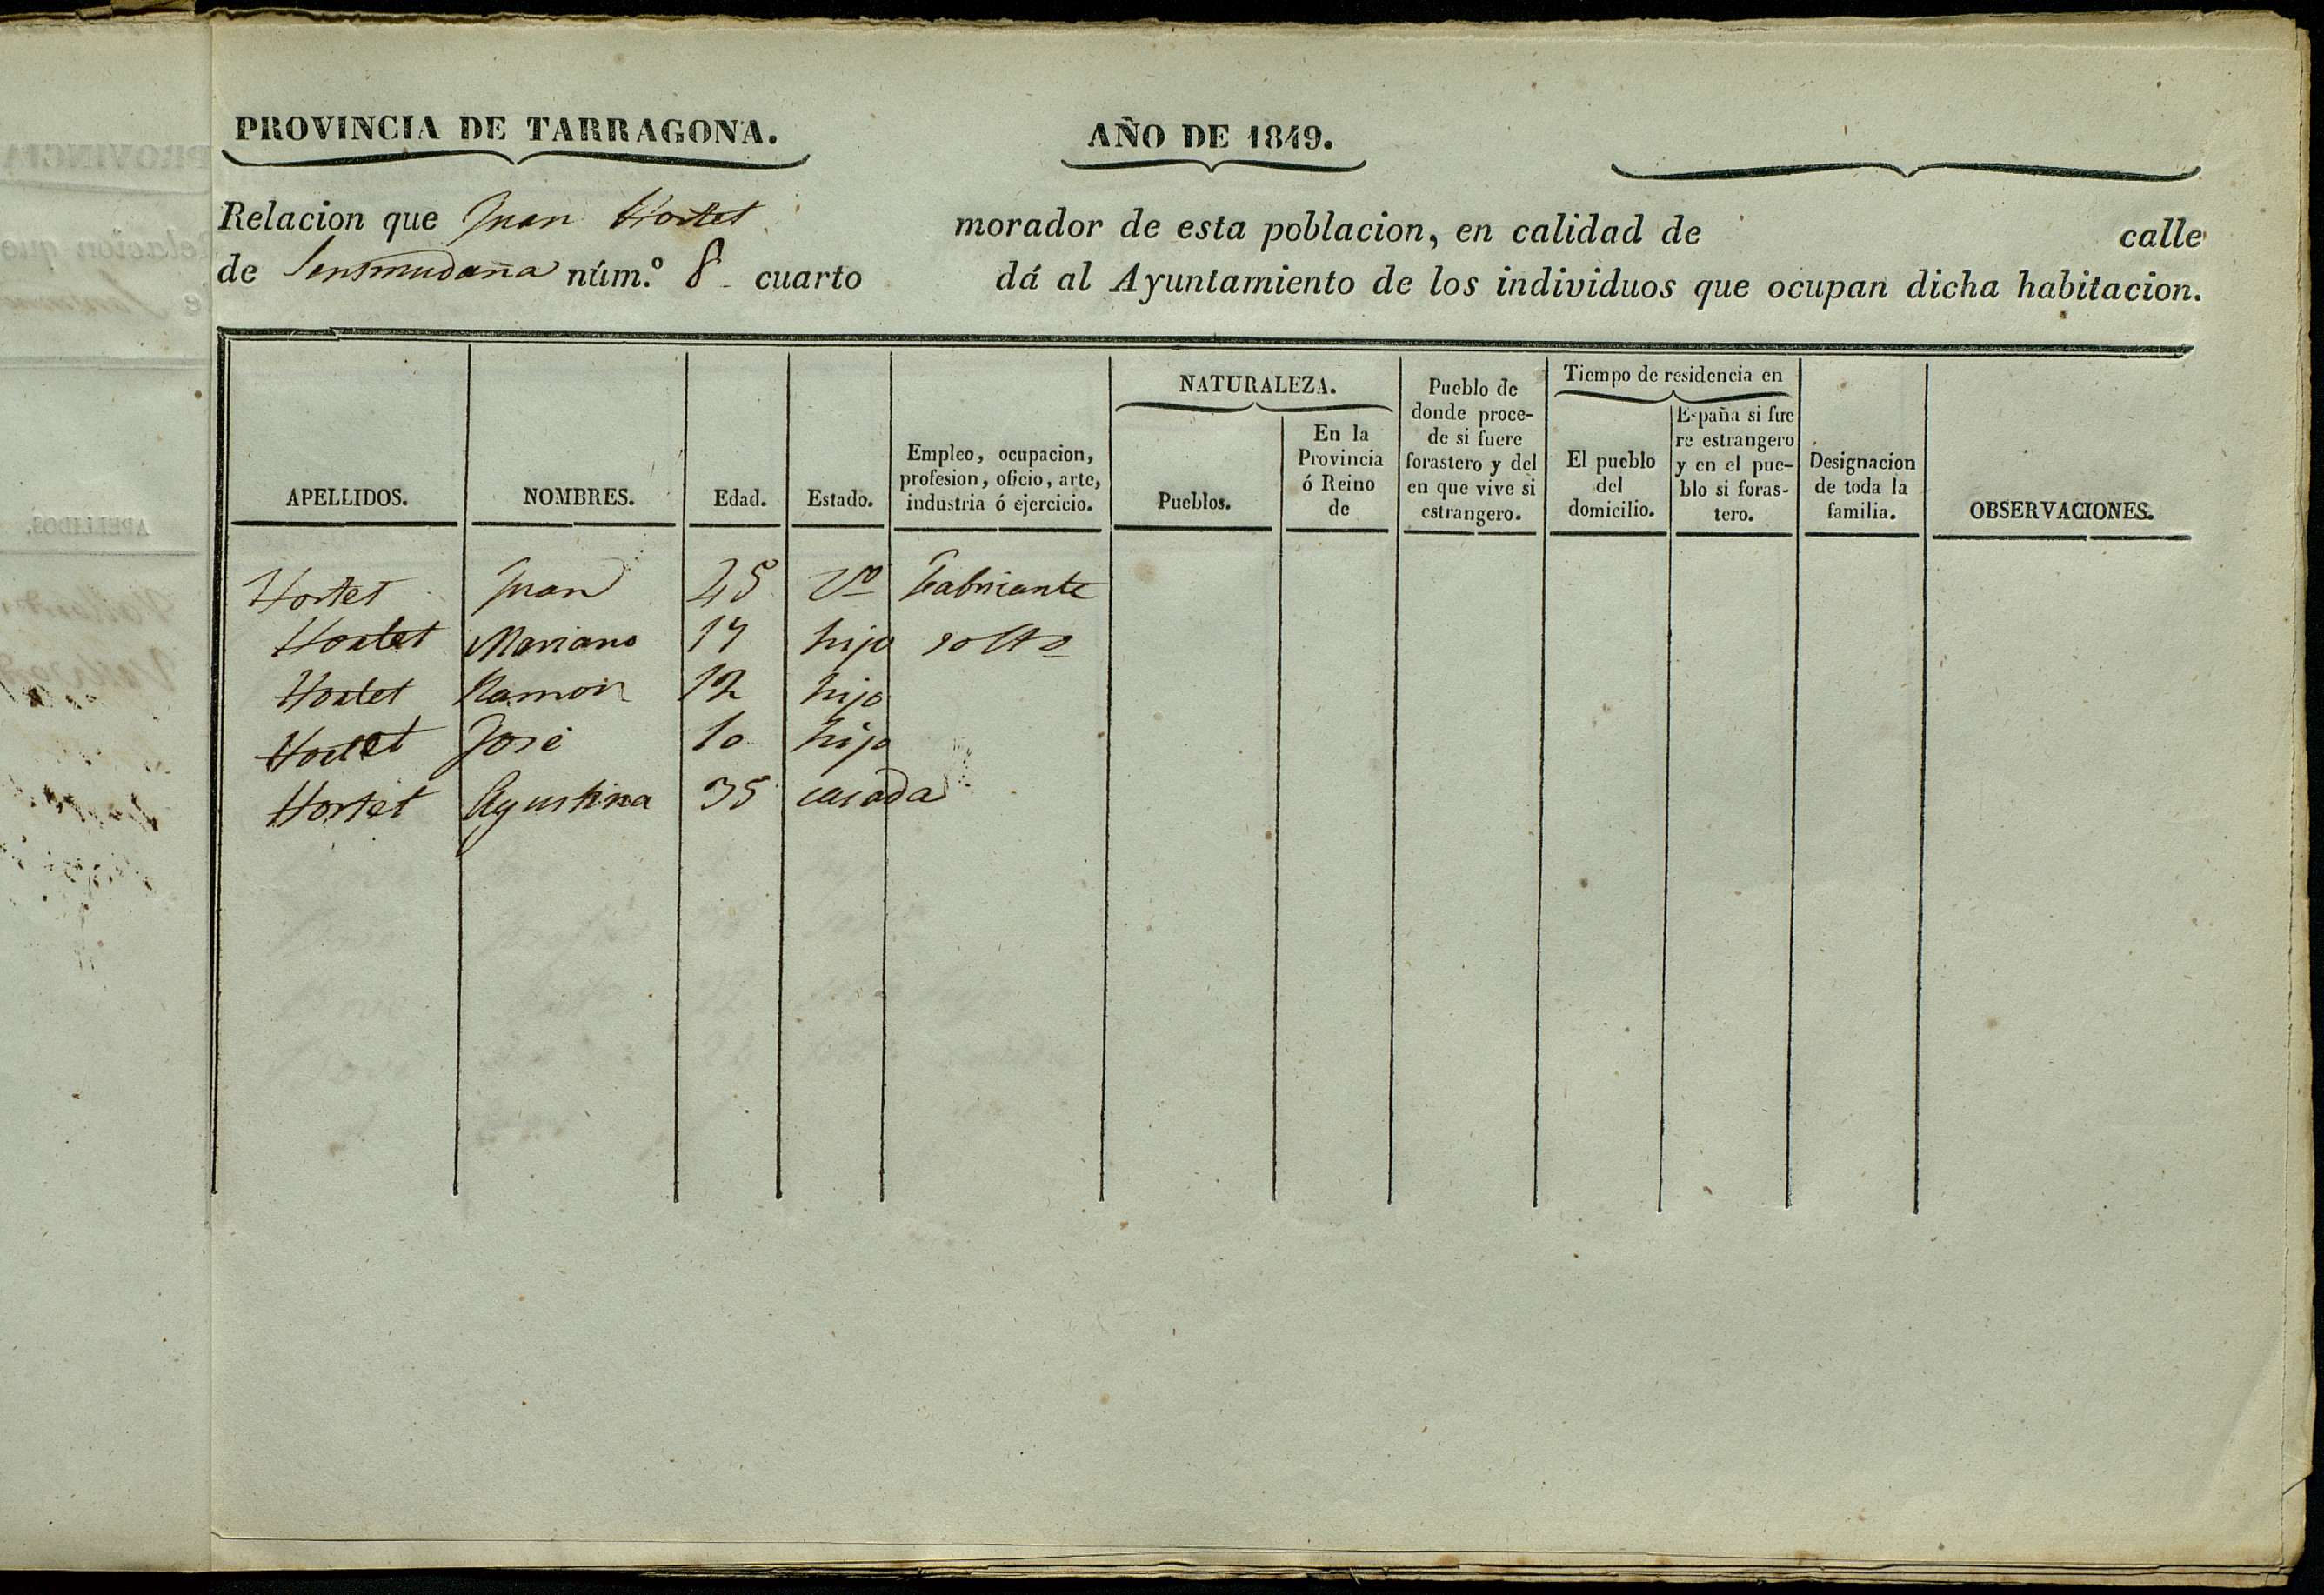 PROVINCIA DE TARRAGONA. AÑO DE 1849.
Relacion que Juan Hortet morador de esta poblacion, en calidad de calle
de Sentmudaña núm.º 8 cuarto dá al Ayuntamiento de los individuos que ocupan dicha habitacion.
APELLIDOS.
NOMBRES.
Edad.
Estado.
Empleo, ocupacion,
profesion, oficio, arte,
industria ó ejercicio.
NATURALEZA.
Pueblos.
En la
Provincia
ó Reino
de
Pueblo de
donde proce-
de si fuere
forastero y del
en que vive si
estrangero.
Tiempo de residencia en
El pueblo
del
domicilio.
España si fue
re estrangero
y en el pue-
blo si foras-
tero.
Designacion
de toda la
familia.
OBSERVACIONES.
Hortet Juan 45 Vº Fabricante
Hortet Mariano 17 hijo soltº
Hortet Ramon 12 hijo
Hortet José 10 hijo
Hortet Agustina 35 casada